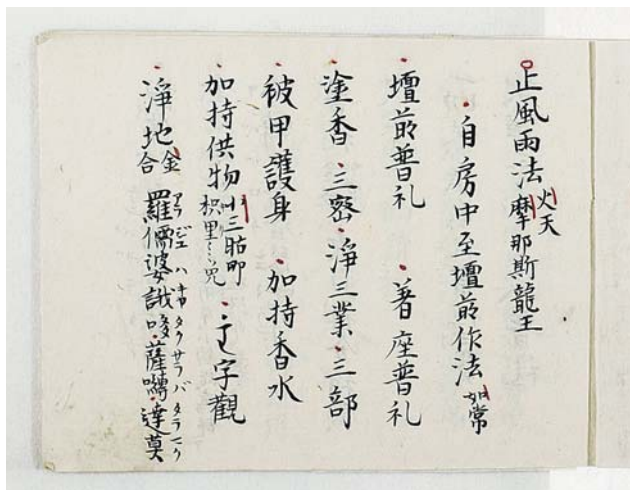 止風雨法 火天 摩那斯龍王
自房中至壇前作法 如常
壇前普礼 着座普礼
塗香 三密 淨三業 三部
被甲護身 加持香水
加持供物 以三鈷印 枳里々兕 字觀
淨地 金合 羅儒婆誐哆薩嚩達莫